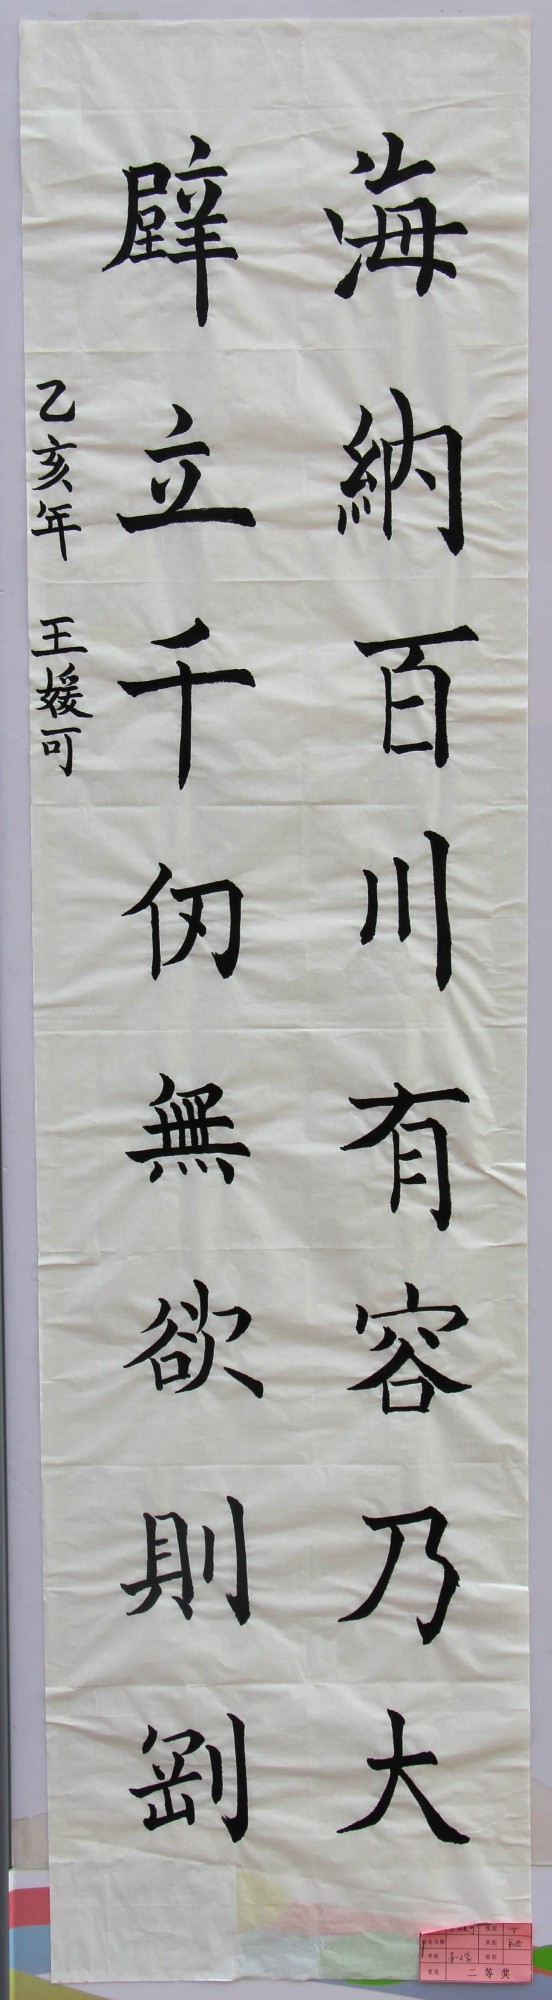 海納百川有容乃大
壁立千仞無欲則剛
乙亥年 王媛可
二等奖